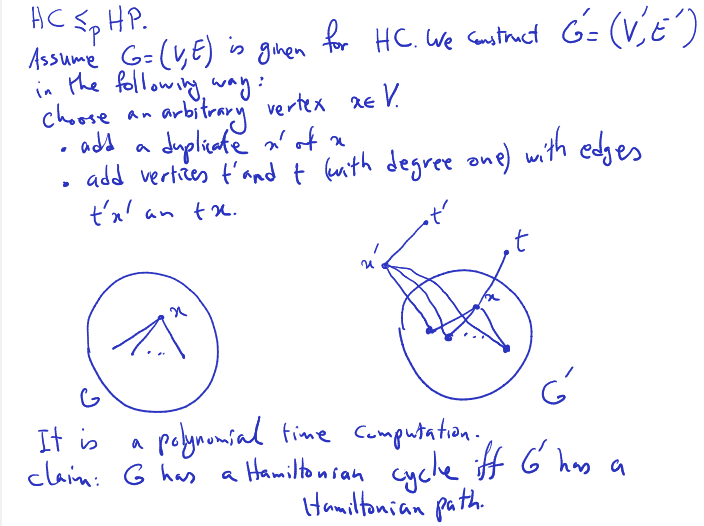 HC ≤p HP.
Assume G=(V,E) is given for HC. We construct G'=(V',E')
in the following way:
choose an arbitrary vertex x∈V.
• add a duplicate x' of x
• add vertices t' and t (with degree one) with edges
t'x' an tx.
t'
x'
t
x
x
...
...
G
G'
It is a polynomial time computation.
claim: G has a Hamiltonian cycle iff G' has a
Hamiltonian path.